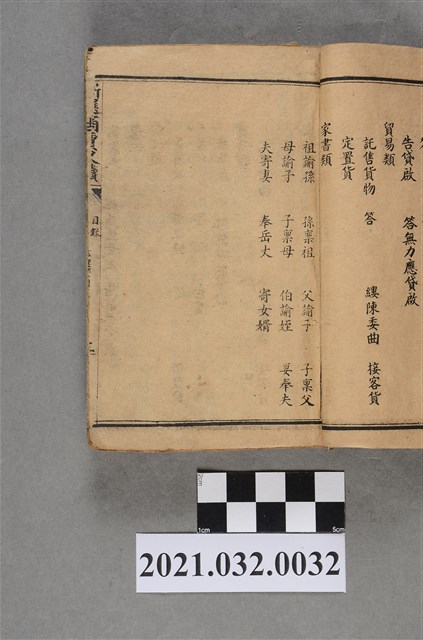 告貸啟　答無力應貸啟
貿易類
託售貨物　答　縷陳委曲　接客貨
定置貨
家書類
祖諭孫　孫稟祖　父諭子　子稟父
母諭子　子稟母　伯諭姪　妻奉夫
夫寄妻　奉岳丈　寄女婿
目錄
2cm
1cm
5cm
2021.032.0032